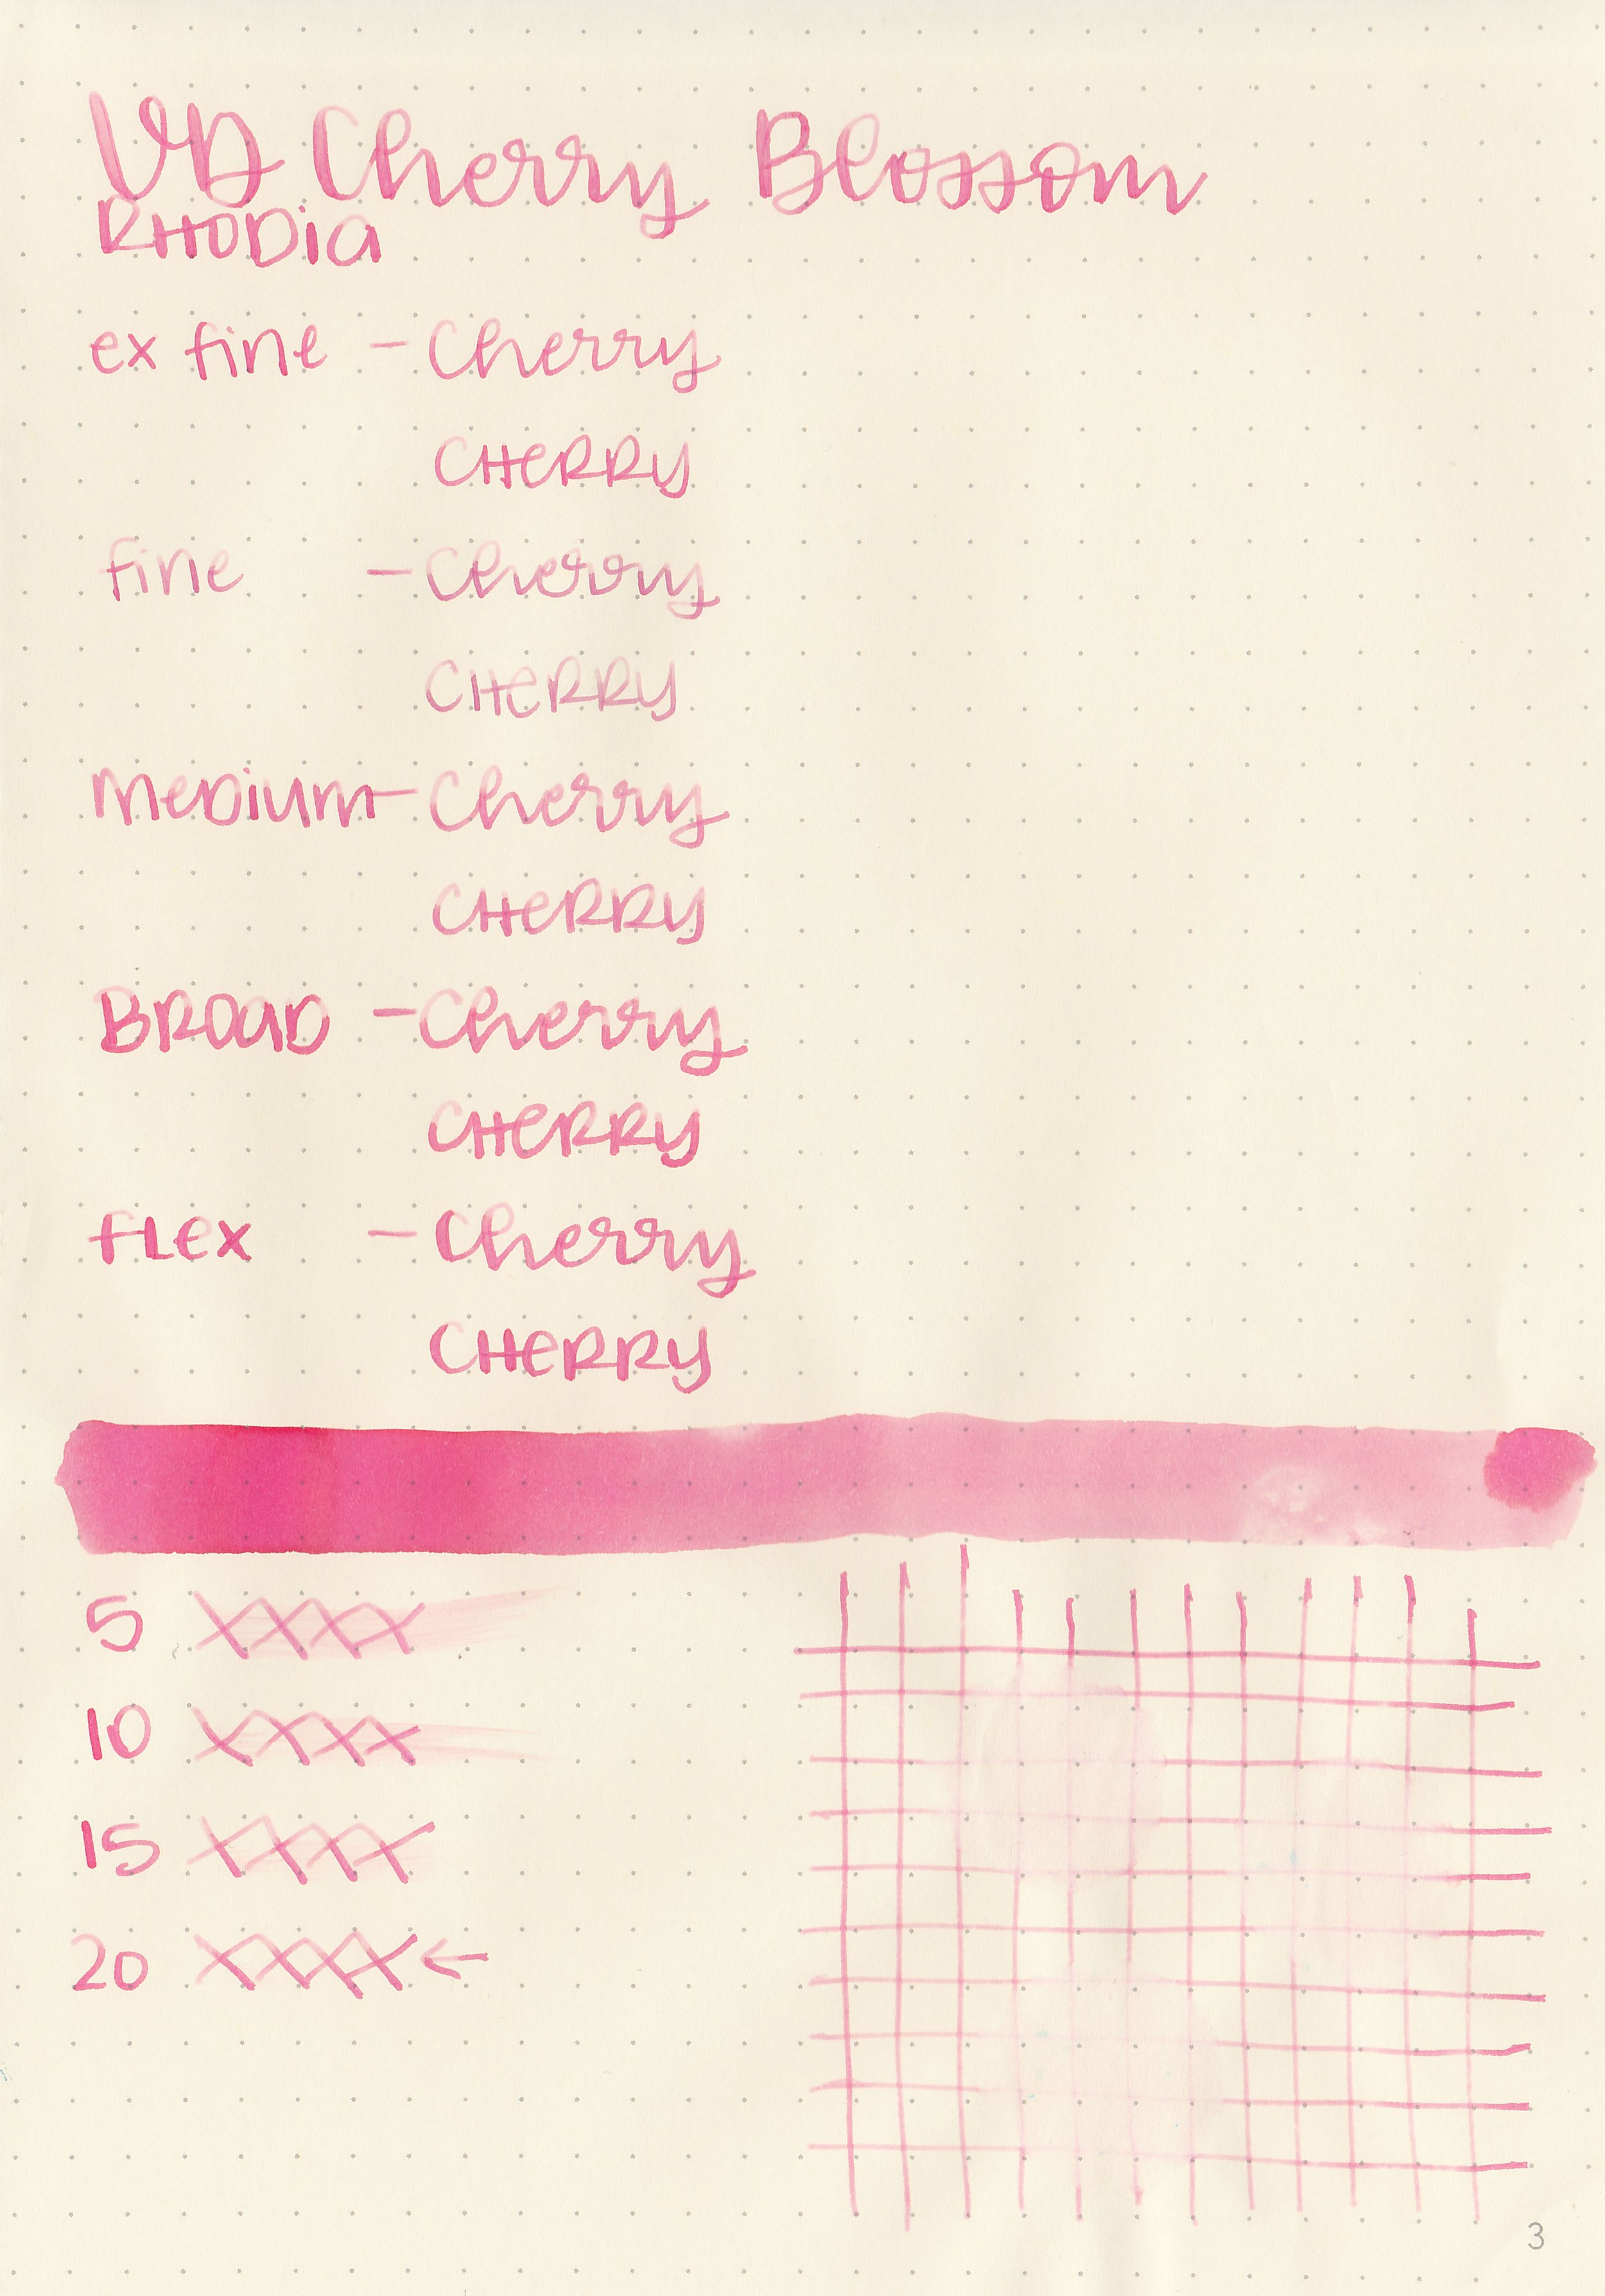 VD Cherry Blossom
RHODia
ex fine - Cherry
CHeRRy
fine - Cherry
CHeRRy
MeDium - Cherry
CHeRRy
BROaD - Cherry
CHeRRy
fLex - Cherry
CHeRRy
5 XXXX
10 XXXX
15 XXXX
20 XXXX ←
3